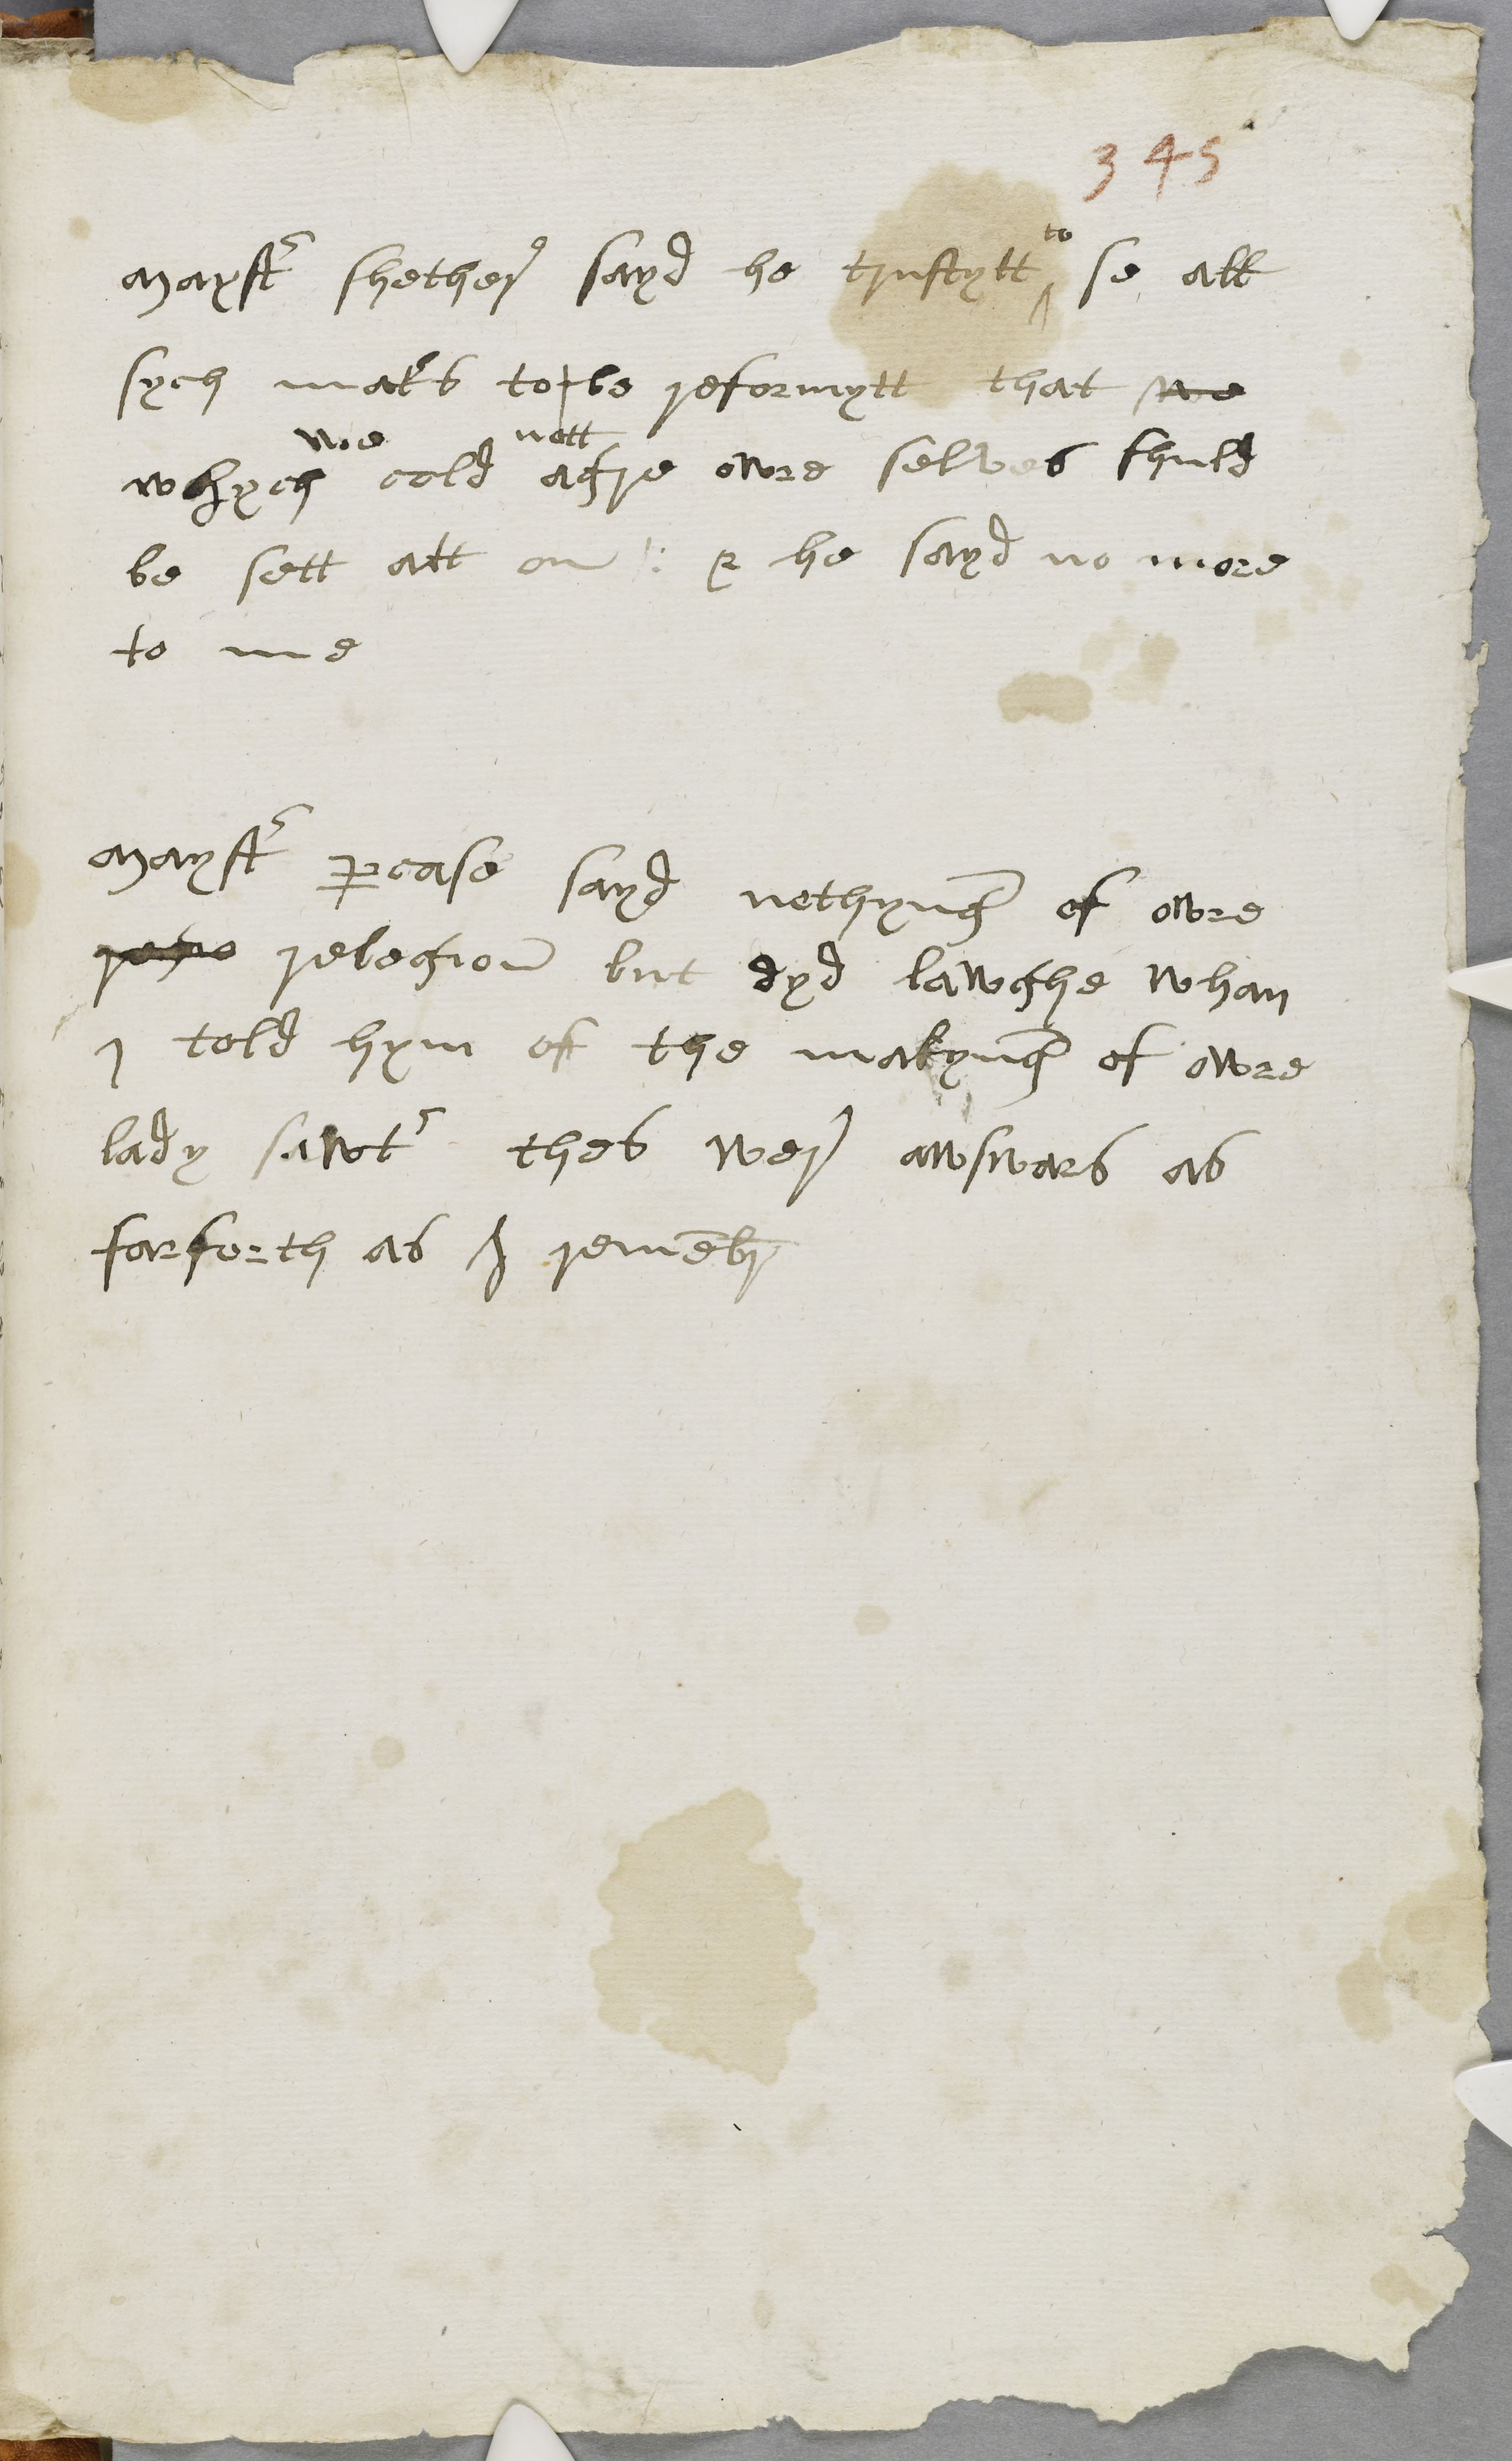 345
mayst^r shether sayd he trustytt ^to se all
sych mat^rs to|be reformytt that we
whych we cold nott agre owre selves shuld
be sett att on : & he sayd no more
to me
mayst^r pcase sayd nothyng of owre
relegion but dyd lawghe whan
I told hym of the makyng of owre
lady sawt^r thes wer answars as
farforth as I remēbr